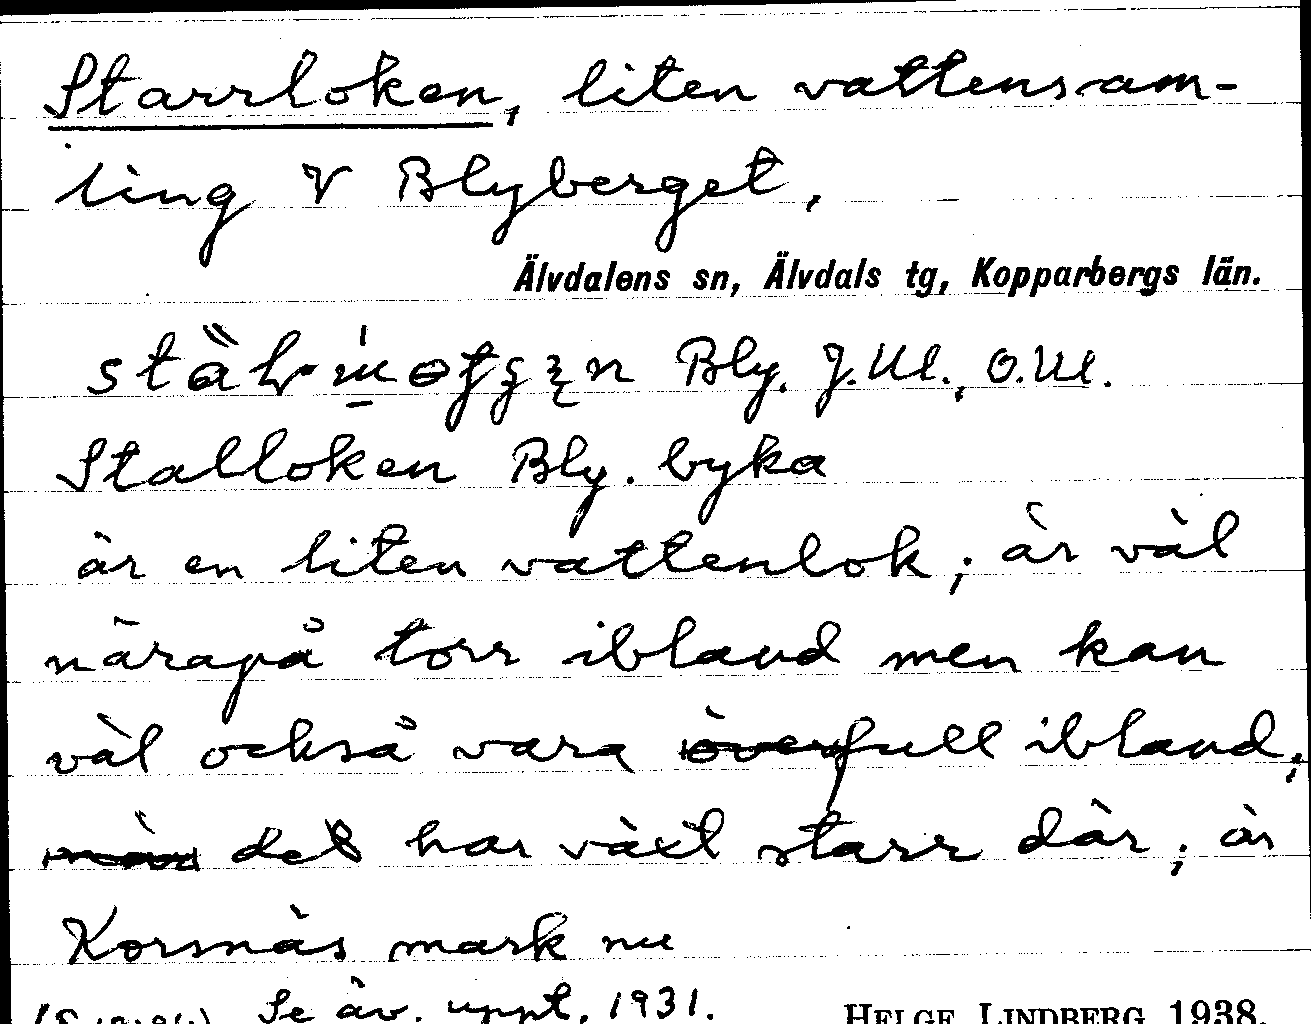 Starrloken, liten vattensam-
ling V Blyberget,
Älvdalens sn, Älvdals tg, Kopparbergs län.
Bly. J.M., O.M.
Stalloken Bly. byka
är en liten vattenlok; är väl
närapå torr ibland men kan
väl också vara överfull ibland;
det har växt starr där; är
Korsnäs mark nu
Se äv. uppt. 1931.
HELGE LINDBERG 1938.